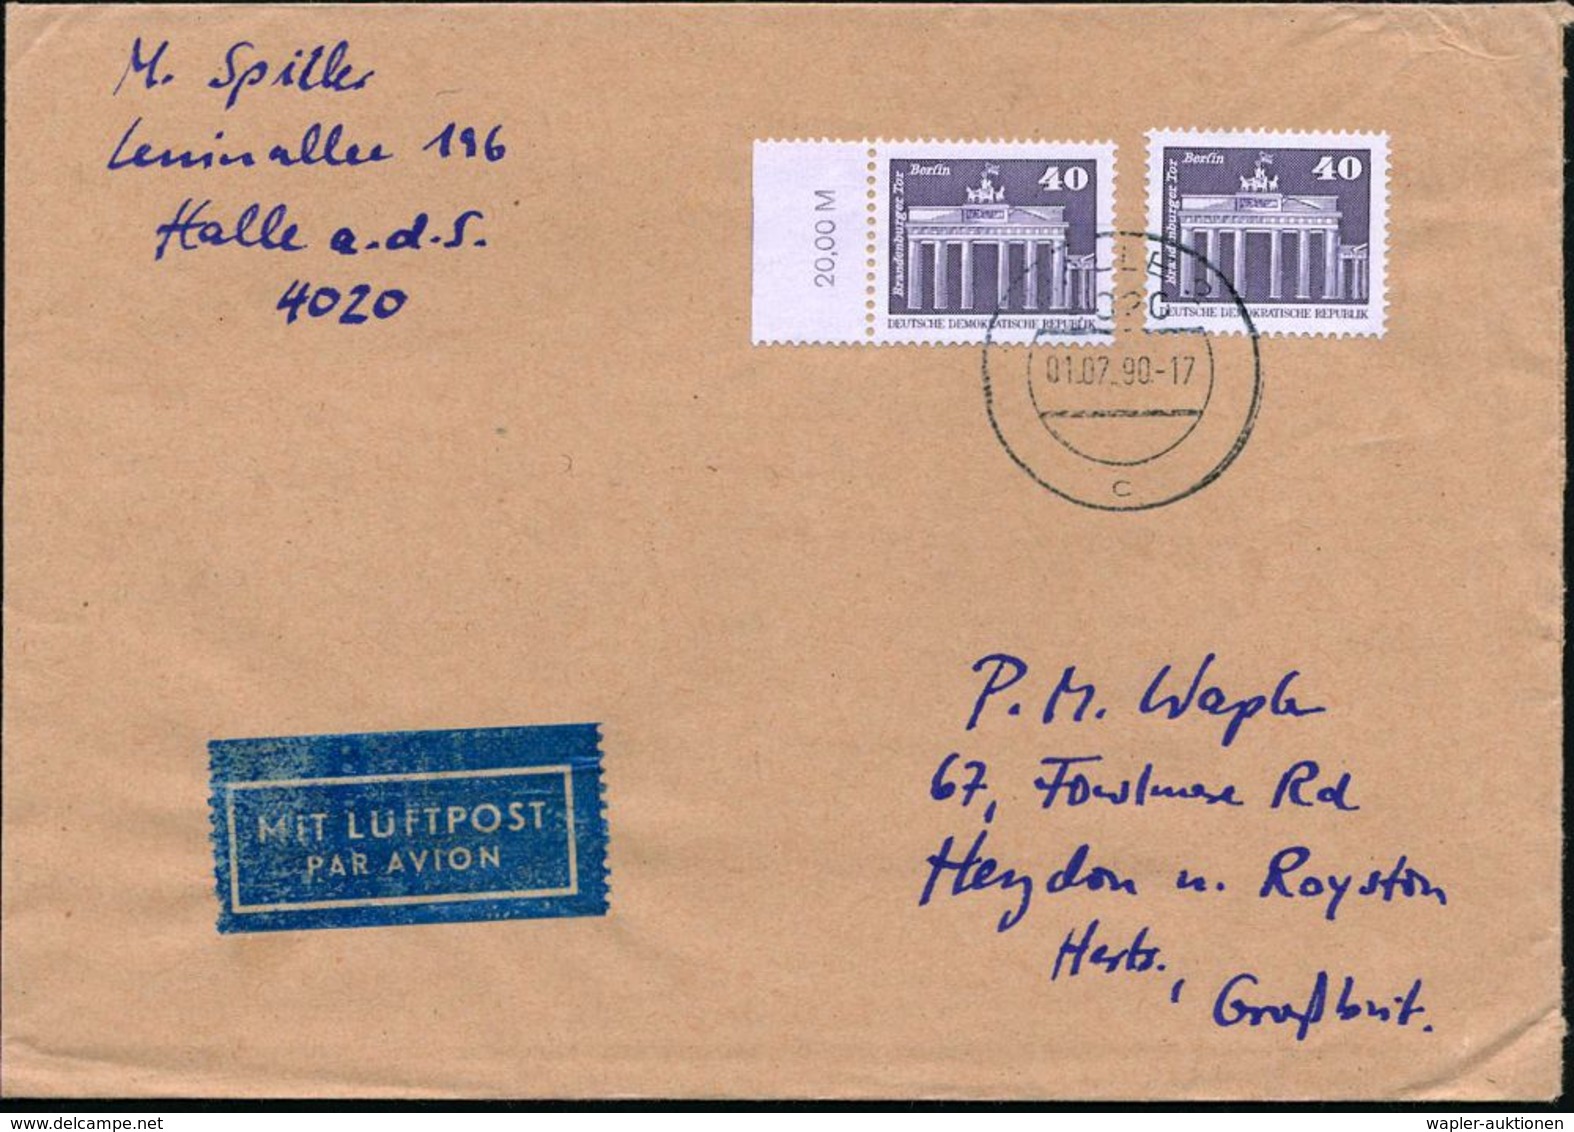 M. Spiller
Leninallee 196
Halle a.d.S.
4020
20,00 M
Berlin
40
Brandenburger Tor
DEUTSCHE DEMOKRATISCHE REPUBLIK
Berlin
40
Brandenburger Tor
DEUTSCHE DEMOKRATISCHE REPUBLIK
01.07.90.-17
c
MIT LUFTPOST
PAR AVION
P. M. Wapler
67, Fowlmere Rd
Heydon n. Royston
Herts.,
Großbrit.
wapler-auktionen